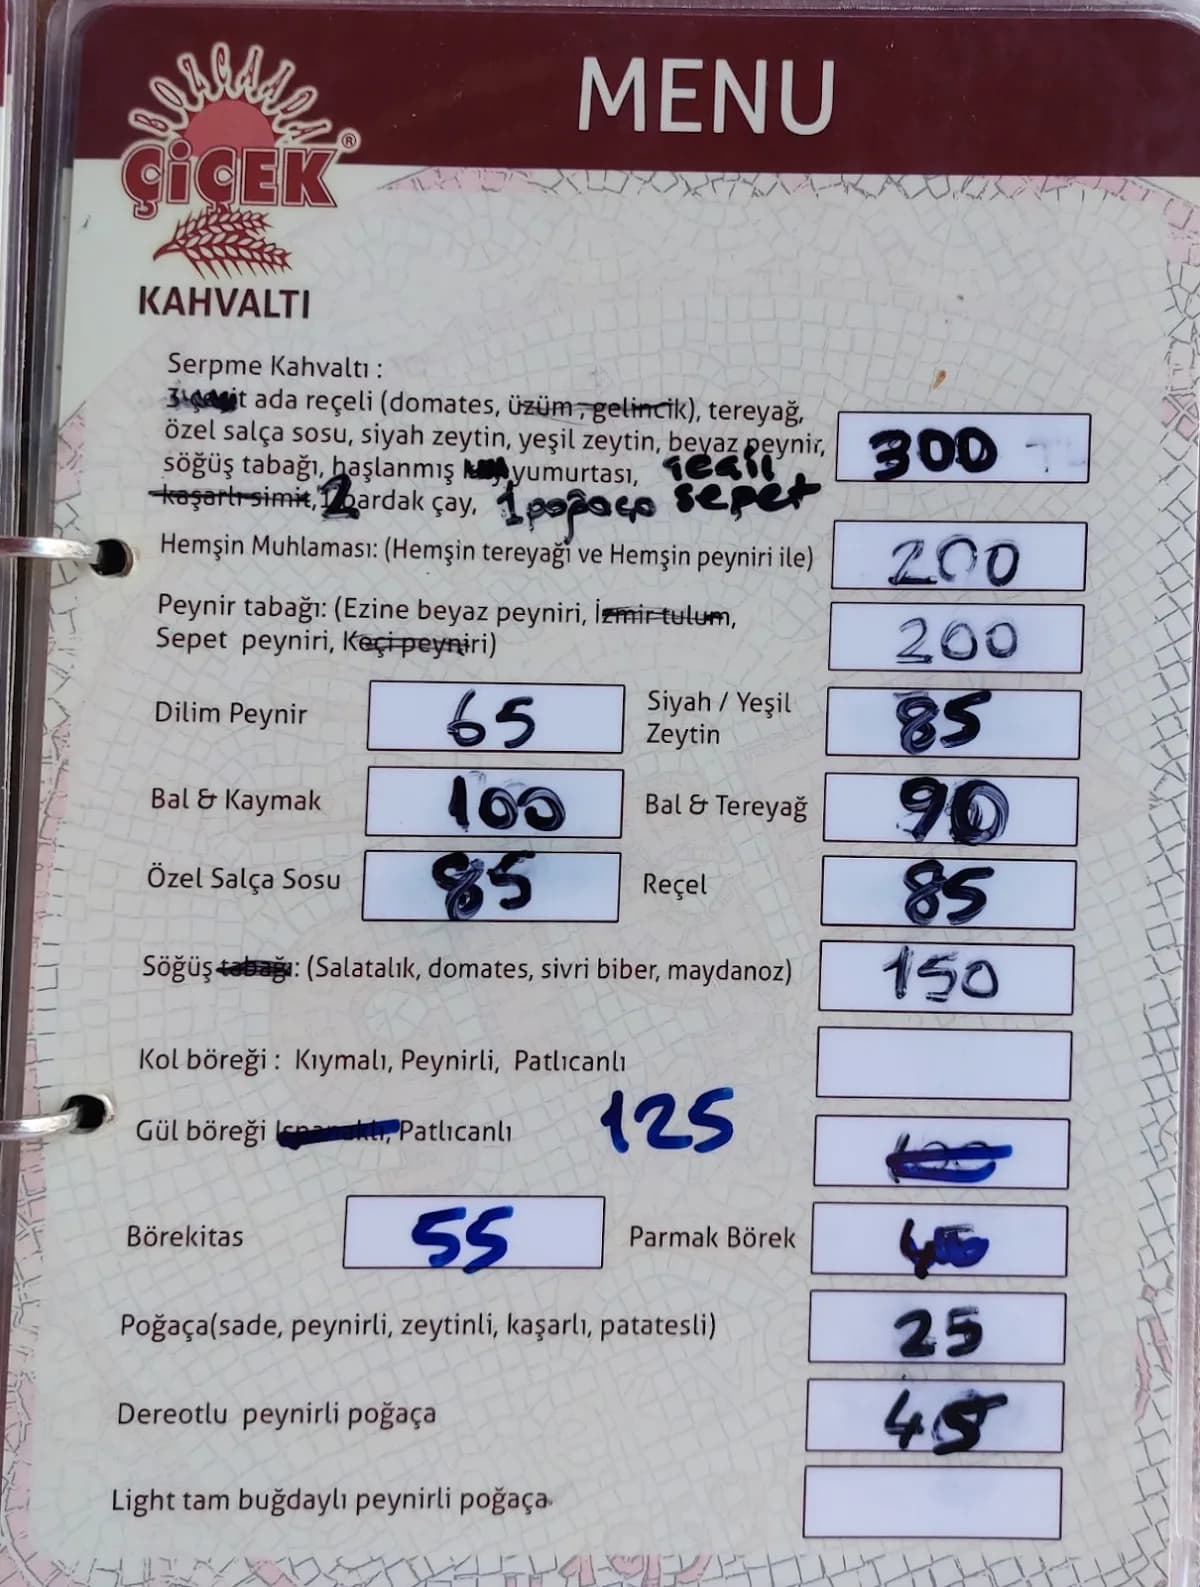 MENU
BOZCAADA
ÇİÇEK®
KAHVALTI
Serpme Kahvaltı :
3 çeşit ada reçeli (domates, üzüm, gelincik), tereyağ,
özel salça sosu, siyah zeytin, yeşil zeytin, beyaz peynir,
300 TL
söğüş tabağı, haşlanmış yumurtası,
kaşarlı simit, 2 bardak çay, 1 poğaça sepet
Hemşin Muhlaması: (Hemşin tereyaği ve Hemşin peyniri ile) 200
Peynir tabağı: (Ezine beyaz peyniri, İzmir tulum,
Sepet peyniri, Keçi peyniri) 200
Dilim Peynir 65 Siyah / Yeşil
Zeytin 85
Bal & Kaymak 100 Bal & Tereyağ 90
Özel Salça Sosu 85 Reçel 85
Söğüş tabağı: (Salatalık, domates, sivri biber, maydanoz) 150
Kol böreği : Kıymalı, Peynirli, Patlıcanlı
Gül böreği Ispanaklı, Patlıcanlı 125 100
Börekitas 55 Parmak Börek
Poğaça(sade, peynirli, zeytinli, kaşarlı, patatesli) 25
Dereotlu peynirli poğaça 45
Light tam buğdaylı peynirli poğaça